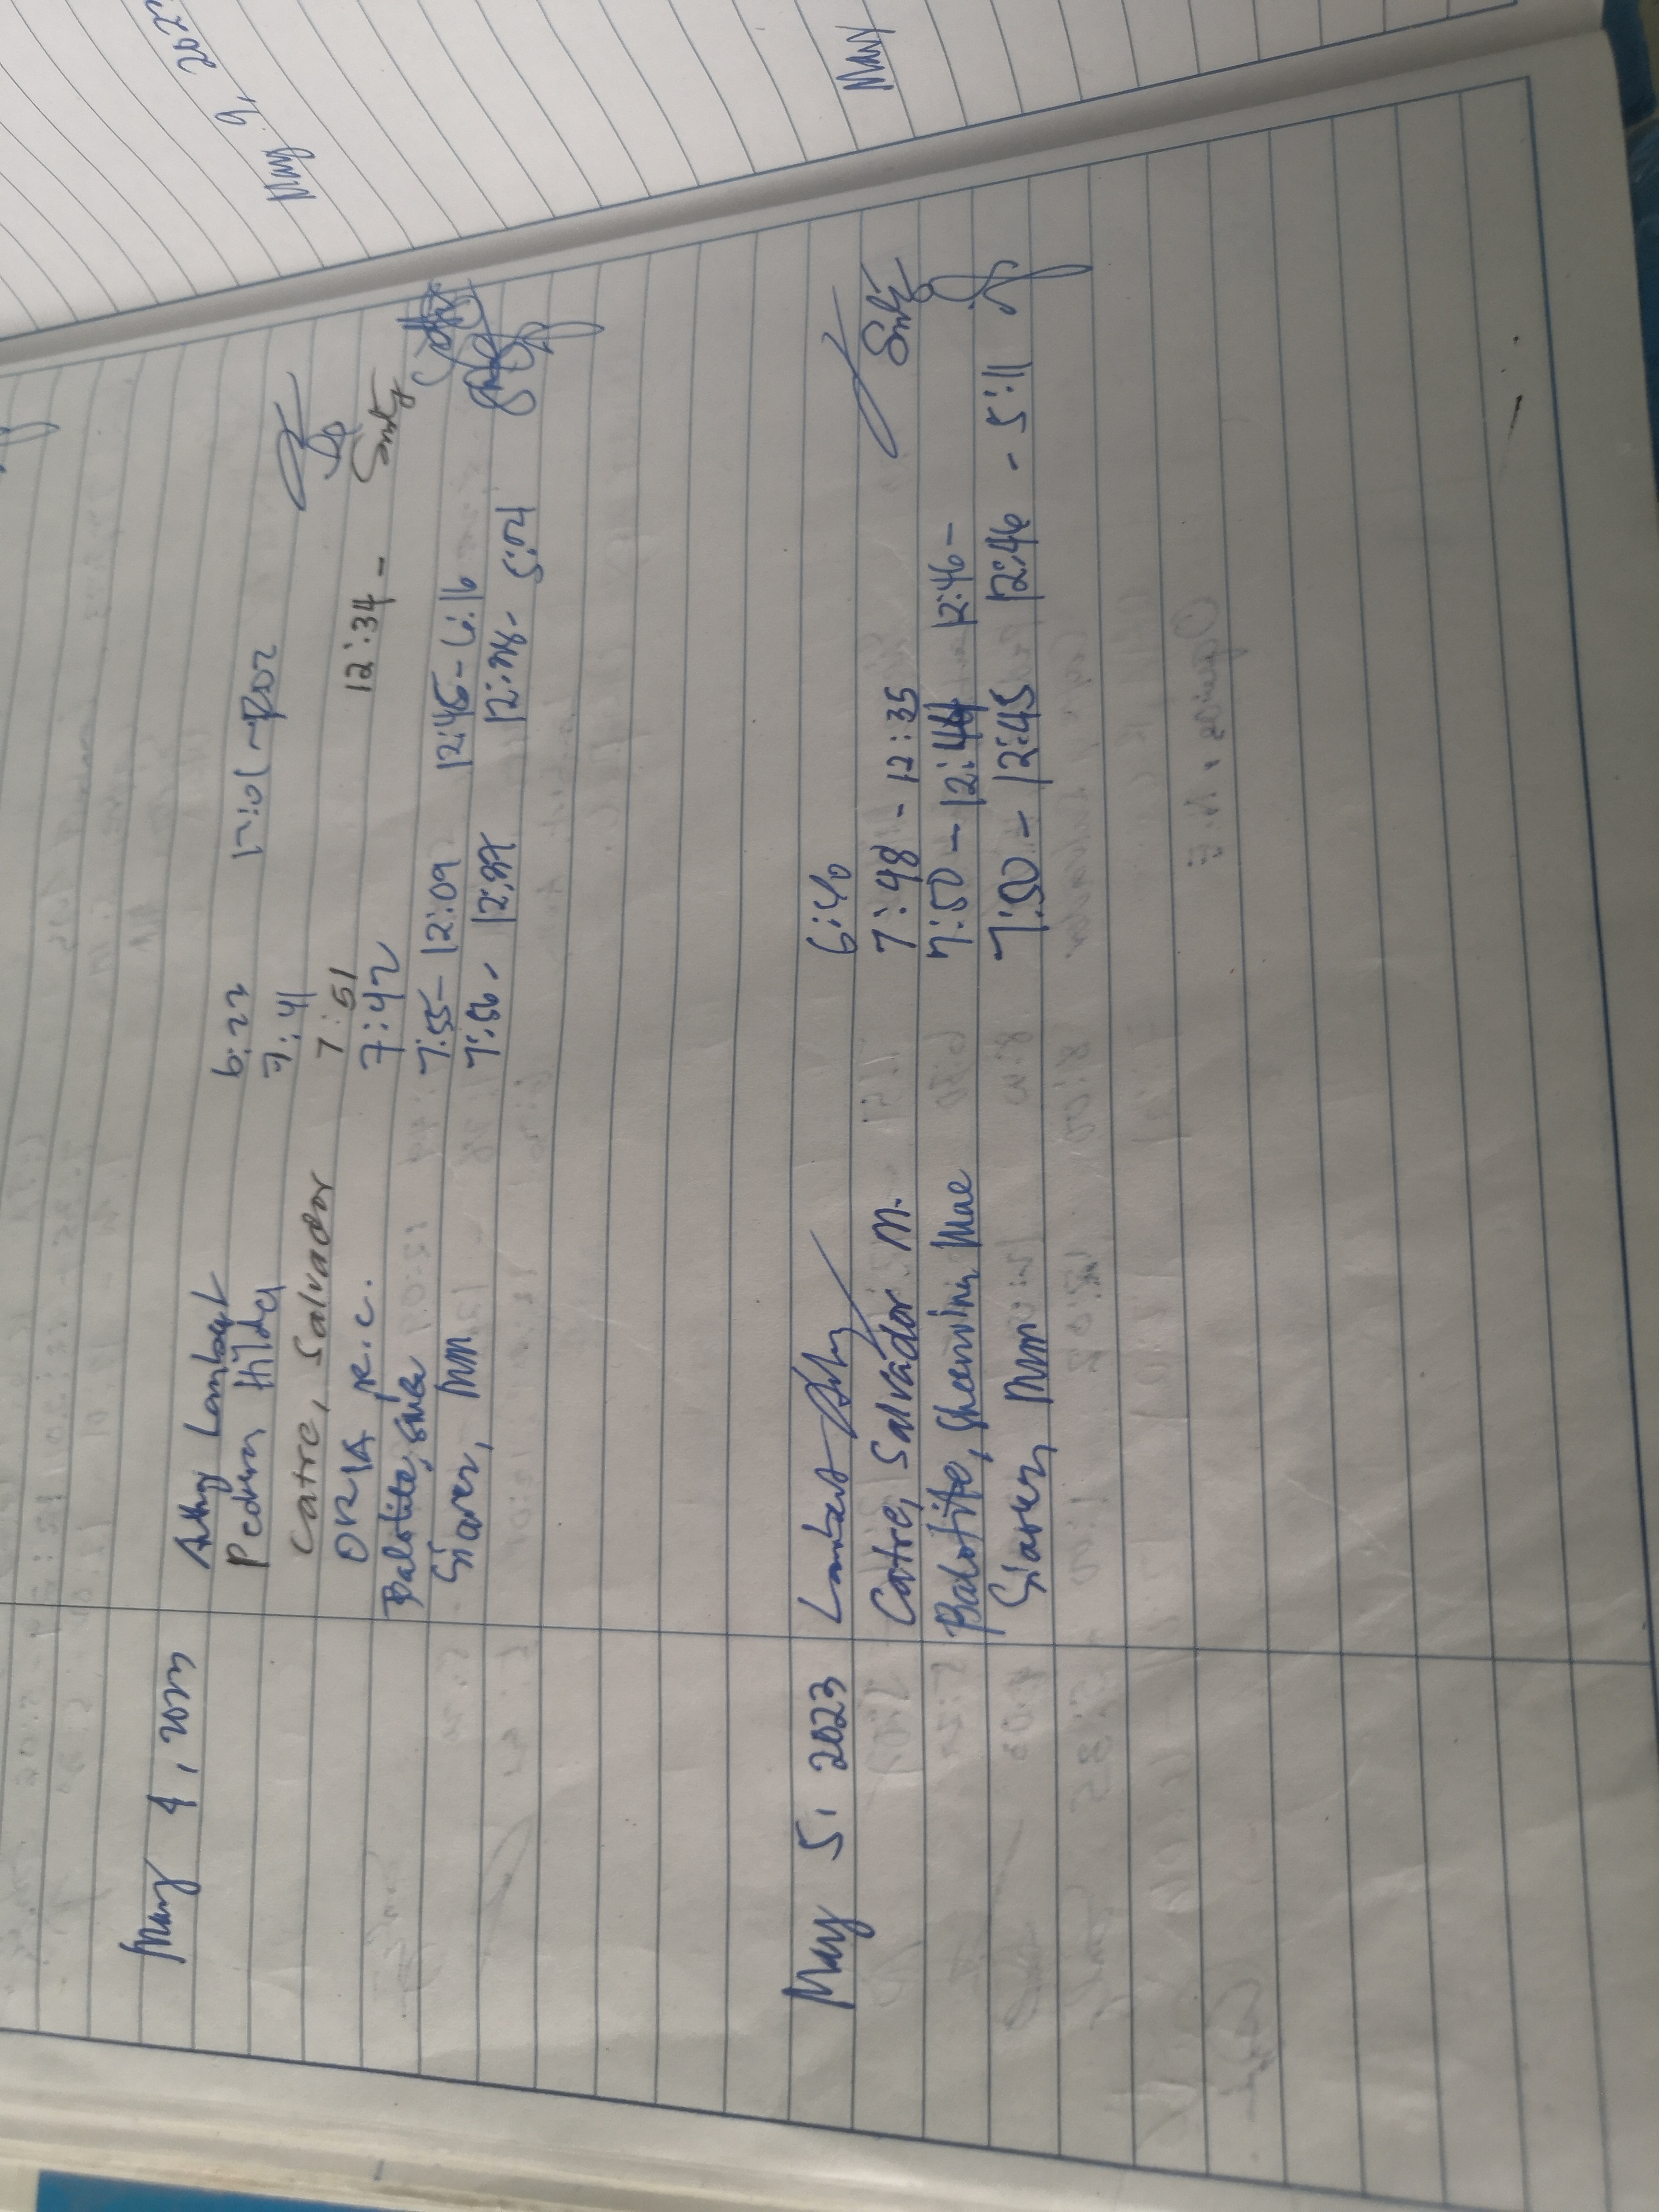 May 4, 2023
Lambert 6:22
Pedum Hilda 7:41 12:01 -
Catre, Salvador 7:51
ORIA R.C. 7:42 12:34 -
Balotite, 7:55 - 12:09 12:45 -
Siarez, MM 7:56 - 12: 12: - 5:04
May 5, 2023 Lambert 6:40
Catre, Salvador M. 7:48 - 12:35
Balotite, Sheenving Mae 7:50 - 12:44 12:46 -
Siarez, MM 7:50 - 12:45 12:46 - 5:11
May 9, 202
May